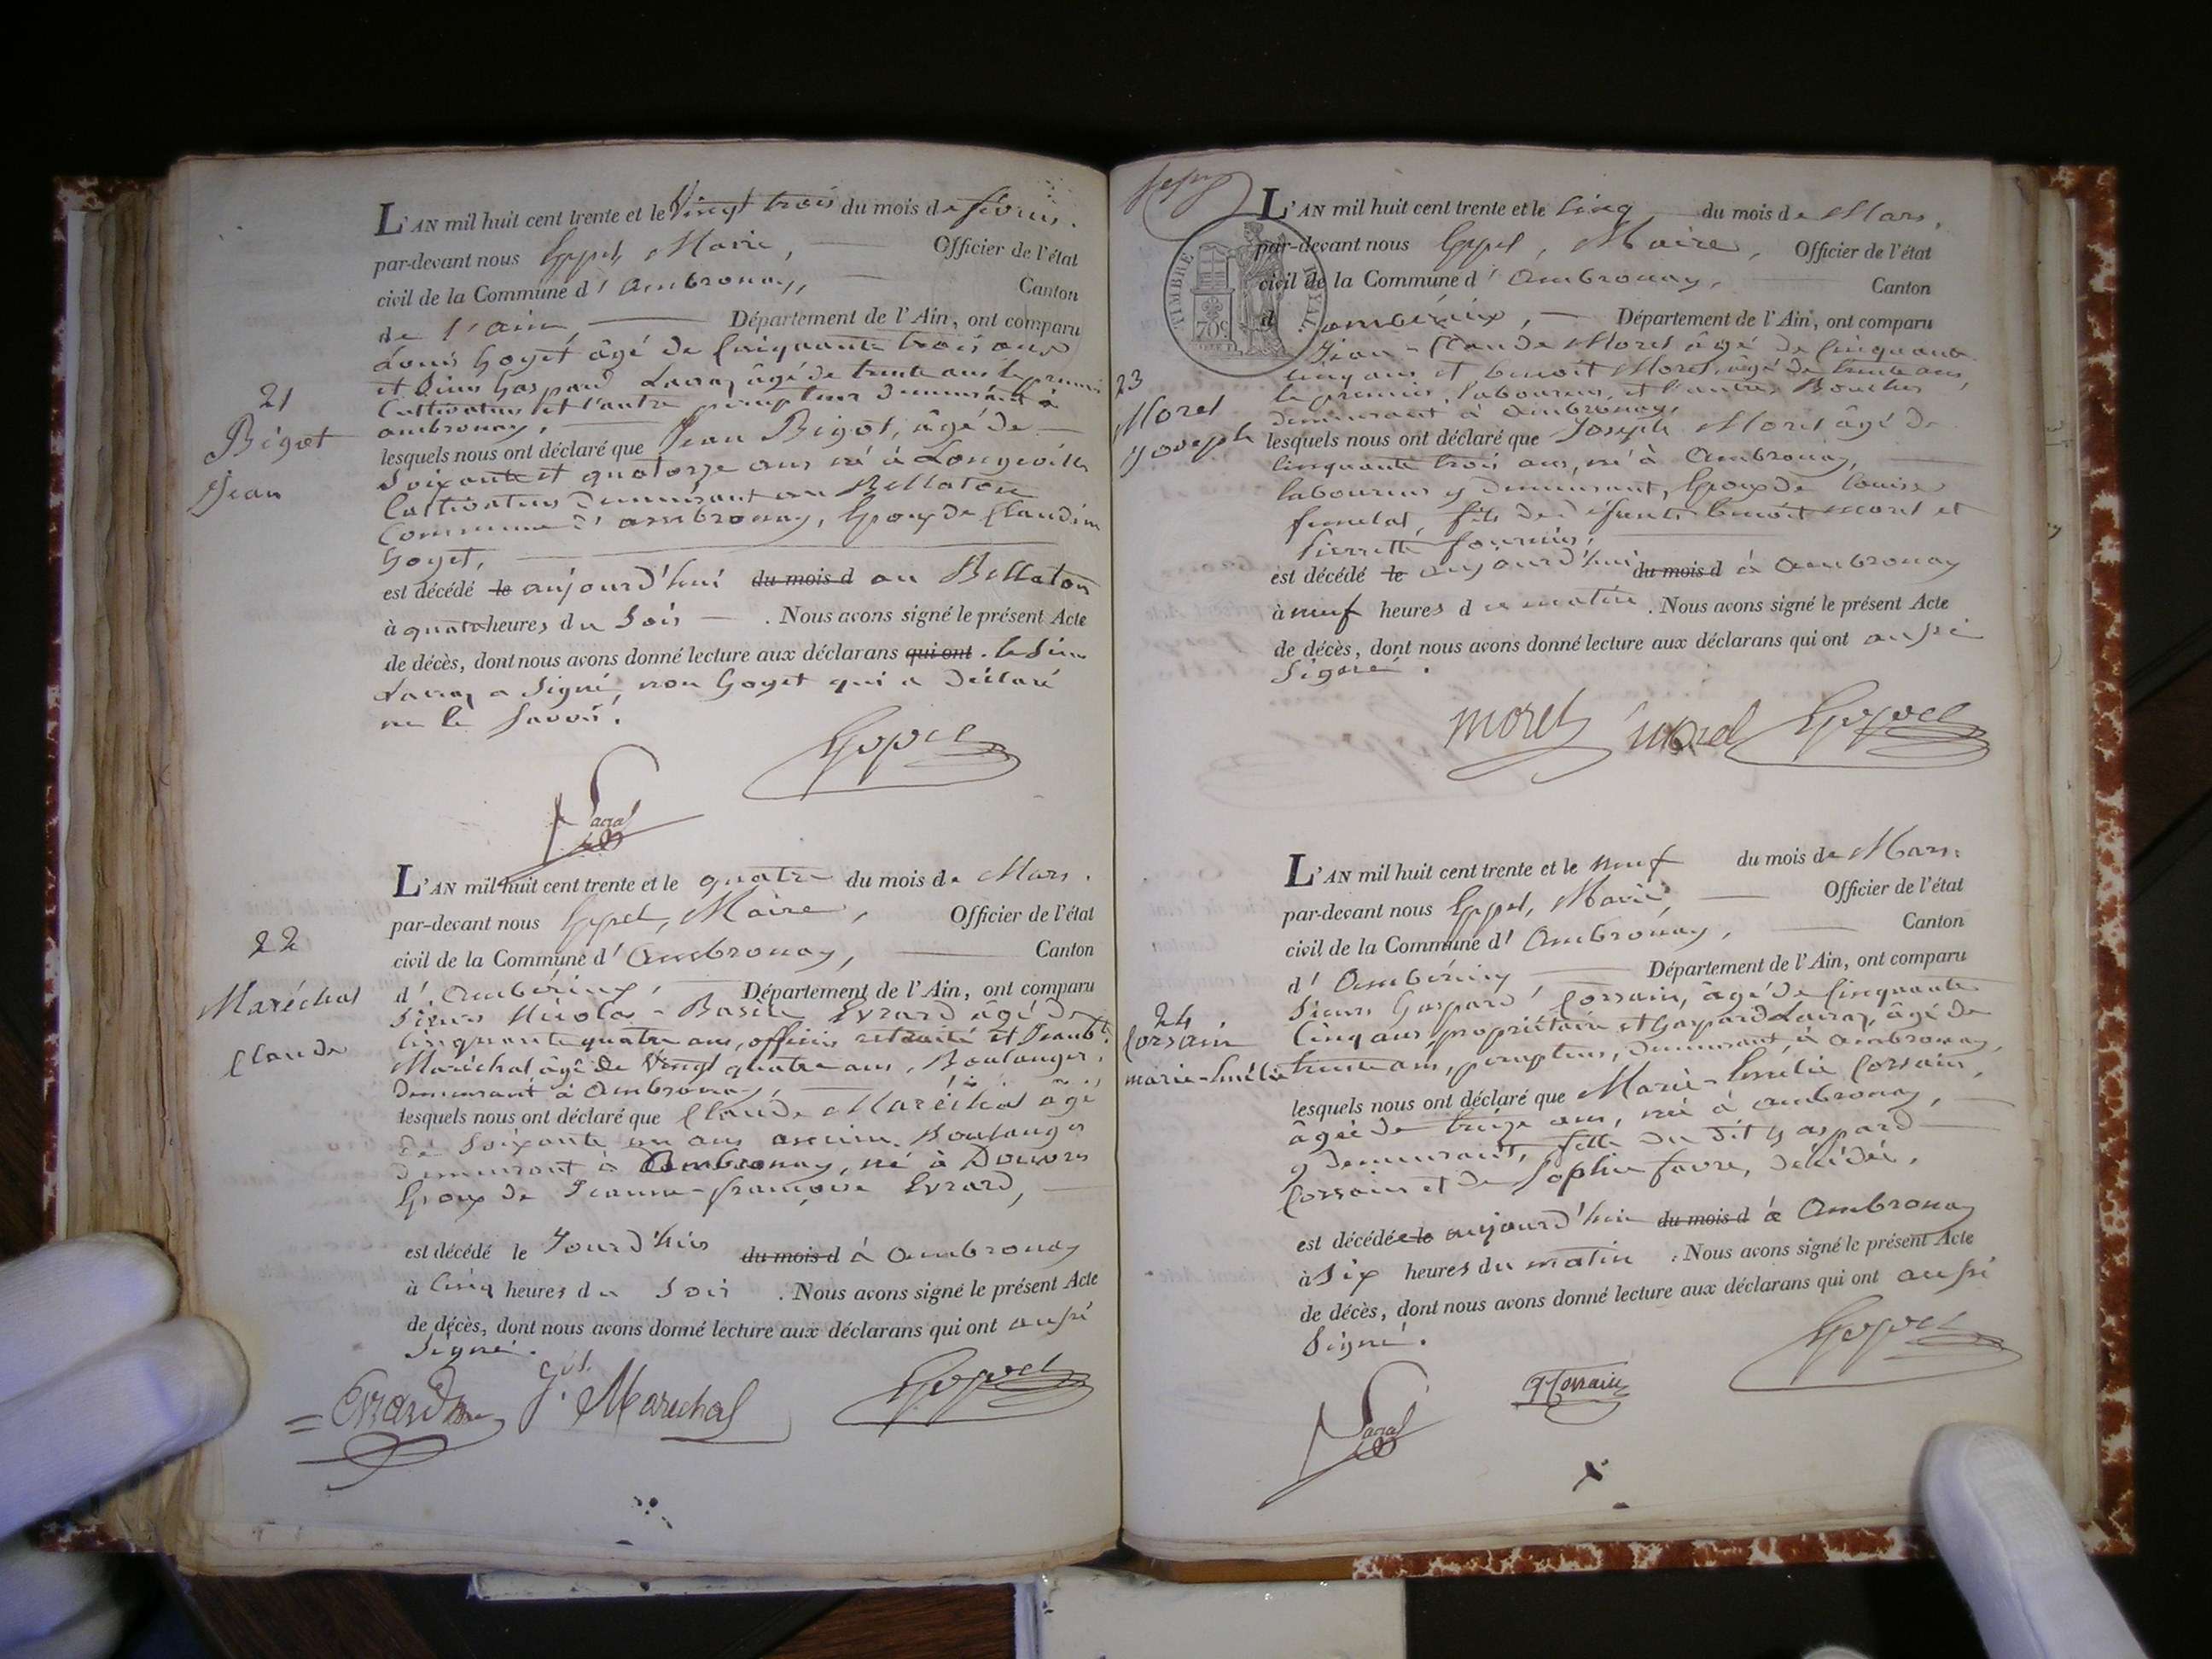 L'AN mil huit cent trente et le Vingt trois du mois de février.
par-devant nous Goyet, Maire, Officier de l'état
civil de la Commune d'Ambronay, Canton
de l'ain, Département de l'Ain, ont comparu
Louis Goyet âgé de Cinquante trois ans
et Sieur Gaspard Lacraz âgé de trente ans le premier
Cultivateur et l'autre percepteur demeurant à
ambronay,
21
Bigot
Jean
lesquels nous ont déclaré que Jean Bigot, âgé de
Soixante et quatorze ans né à Longeville
Cultivateur Demeurant au Bellaton
Commune d'ambronay, Epoux de Claudine
Goyet,
est décédé le aujourd'hui du mois d au Bellaton
à quatre heures du Soir. Nous avons signé le présent Acte
de décès, dont nous avons donné lecture aux déclarans qui ont. le Sieur
a Signé, non Goyet qui a déclaré
ne le Savoir.
L'AN mil huit cent trente et le quatre du mois de Mars.
par-devant nous Goyet, Maire, Officier de l'état
civil de la Commune d'Ambronay, Canton
d'Ambérieux, Département de l'Ain, ont comparu
22
Maréchal
Claude
Sieurs Nicolas-Basile Evrard âgé de
Cinquante quatre ans, officier retraité et Jean Bte
Maréchal âgé de Vingt quatre ans, Boulanger,
Demeurant à Ambronay,
lesquels nous ont déclaré que Claude Maréchal âgé
de Soixante un ans ancien Boulanger
demeurant à Ambronay, né à Douvres
Epoux de Jeanne-françoise Evrard,
est décédé le Jourd'hui du mois d à Ambronay
à Cinq heures du Soir. Nous avons signé le présent Acte
de décès, dont nous avons donné lecture aux déclarans qui ont aussi
Signé.
Evrard J. Bt. Marechal
TIMBRE ROYAL
70c
L'AN mil huit cent trente et le Cinq du mois de Mars,
par-devant nous Goyet, Maire, Officier de l'état
civil de la Commune d'Ambronay, Canton
d'ambérieux, Département de l'Ain, ont comparu
23
Morel
Joseph
Jean-Claude Morel âgé de Cinquante
Cinq ans et benoit Morel, âgé de trente ans,
le premier, laboureur, et l'autre, Boucher
demeurant à Ambronay,
lesquels nous ont déclaré que Joseph Morel âgé de
Cinquante trois ans, né à Ambronay,
laboureur y demeurant, Epoux de louise
fils de défunts benoit morel et
Pierrette fournier,
est décédé le aujourd'hui du mois d à Ambronay
à neuf heures du matin. Nous avons signé le présent Acte
de décès, dont nous avons donné lecture aux déclarans qui ont aussi
Signé.
morel morel
L'AN mil huit cent trente et le neuf du mois de Mars.
par-devant nous Goyet, Maire, Officier de l'état
civil de la Commune d'Ambronay, Canton
d'Ambérieux Département de l'Ain, ont comparu
24
Corsain
marie-Emélie
Sieurs Gaspard Corsain, âgé de Cinquante
Cinq ans, propriétaire et Gaspard Lacraz, âgé de
trente ans, percepteur, Demeurant à ambronay,
lesquels nous ont déclaré que Marie-Emélie Corsain,
âgée de treize ans, née à ambronay,
y demeurant, fille du dit Gaspard
Corsain et de Sophie favre, décédée,
est décédée le aujourd'hui du mois d à Ambronay
à Six heures du matin. Nous avons signé le présent Acte
de décès, dont nous avons donné lecture aux déclarans qui ont aussi
Signé.
G Corsain